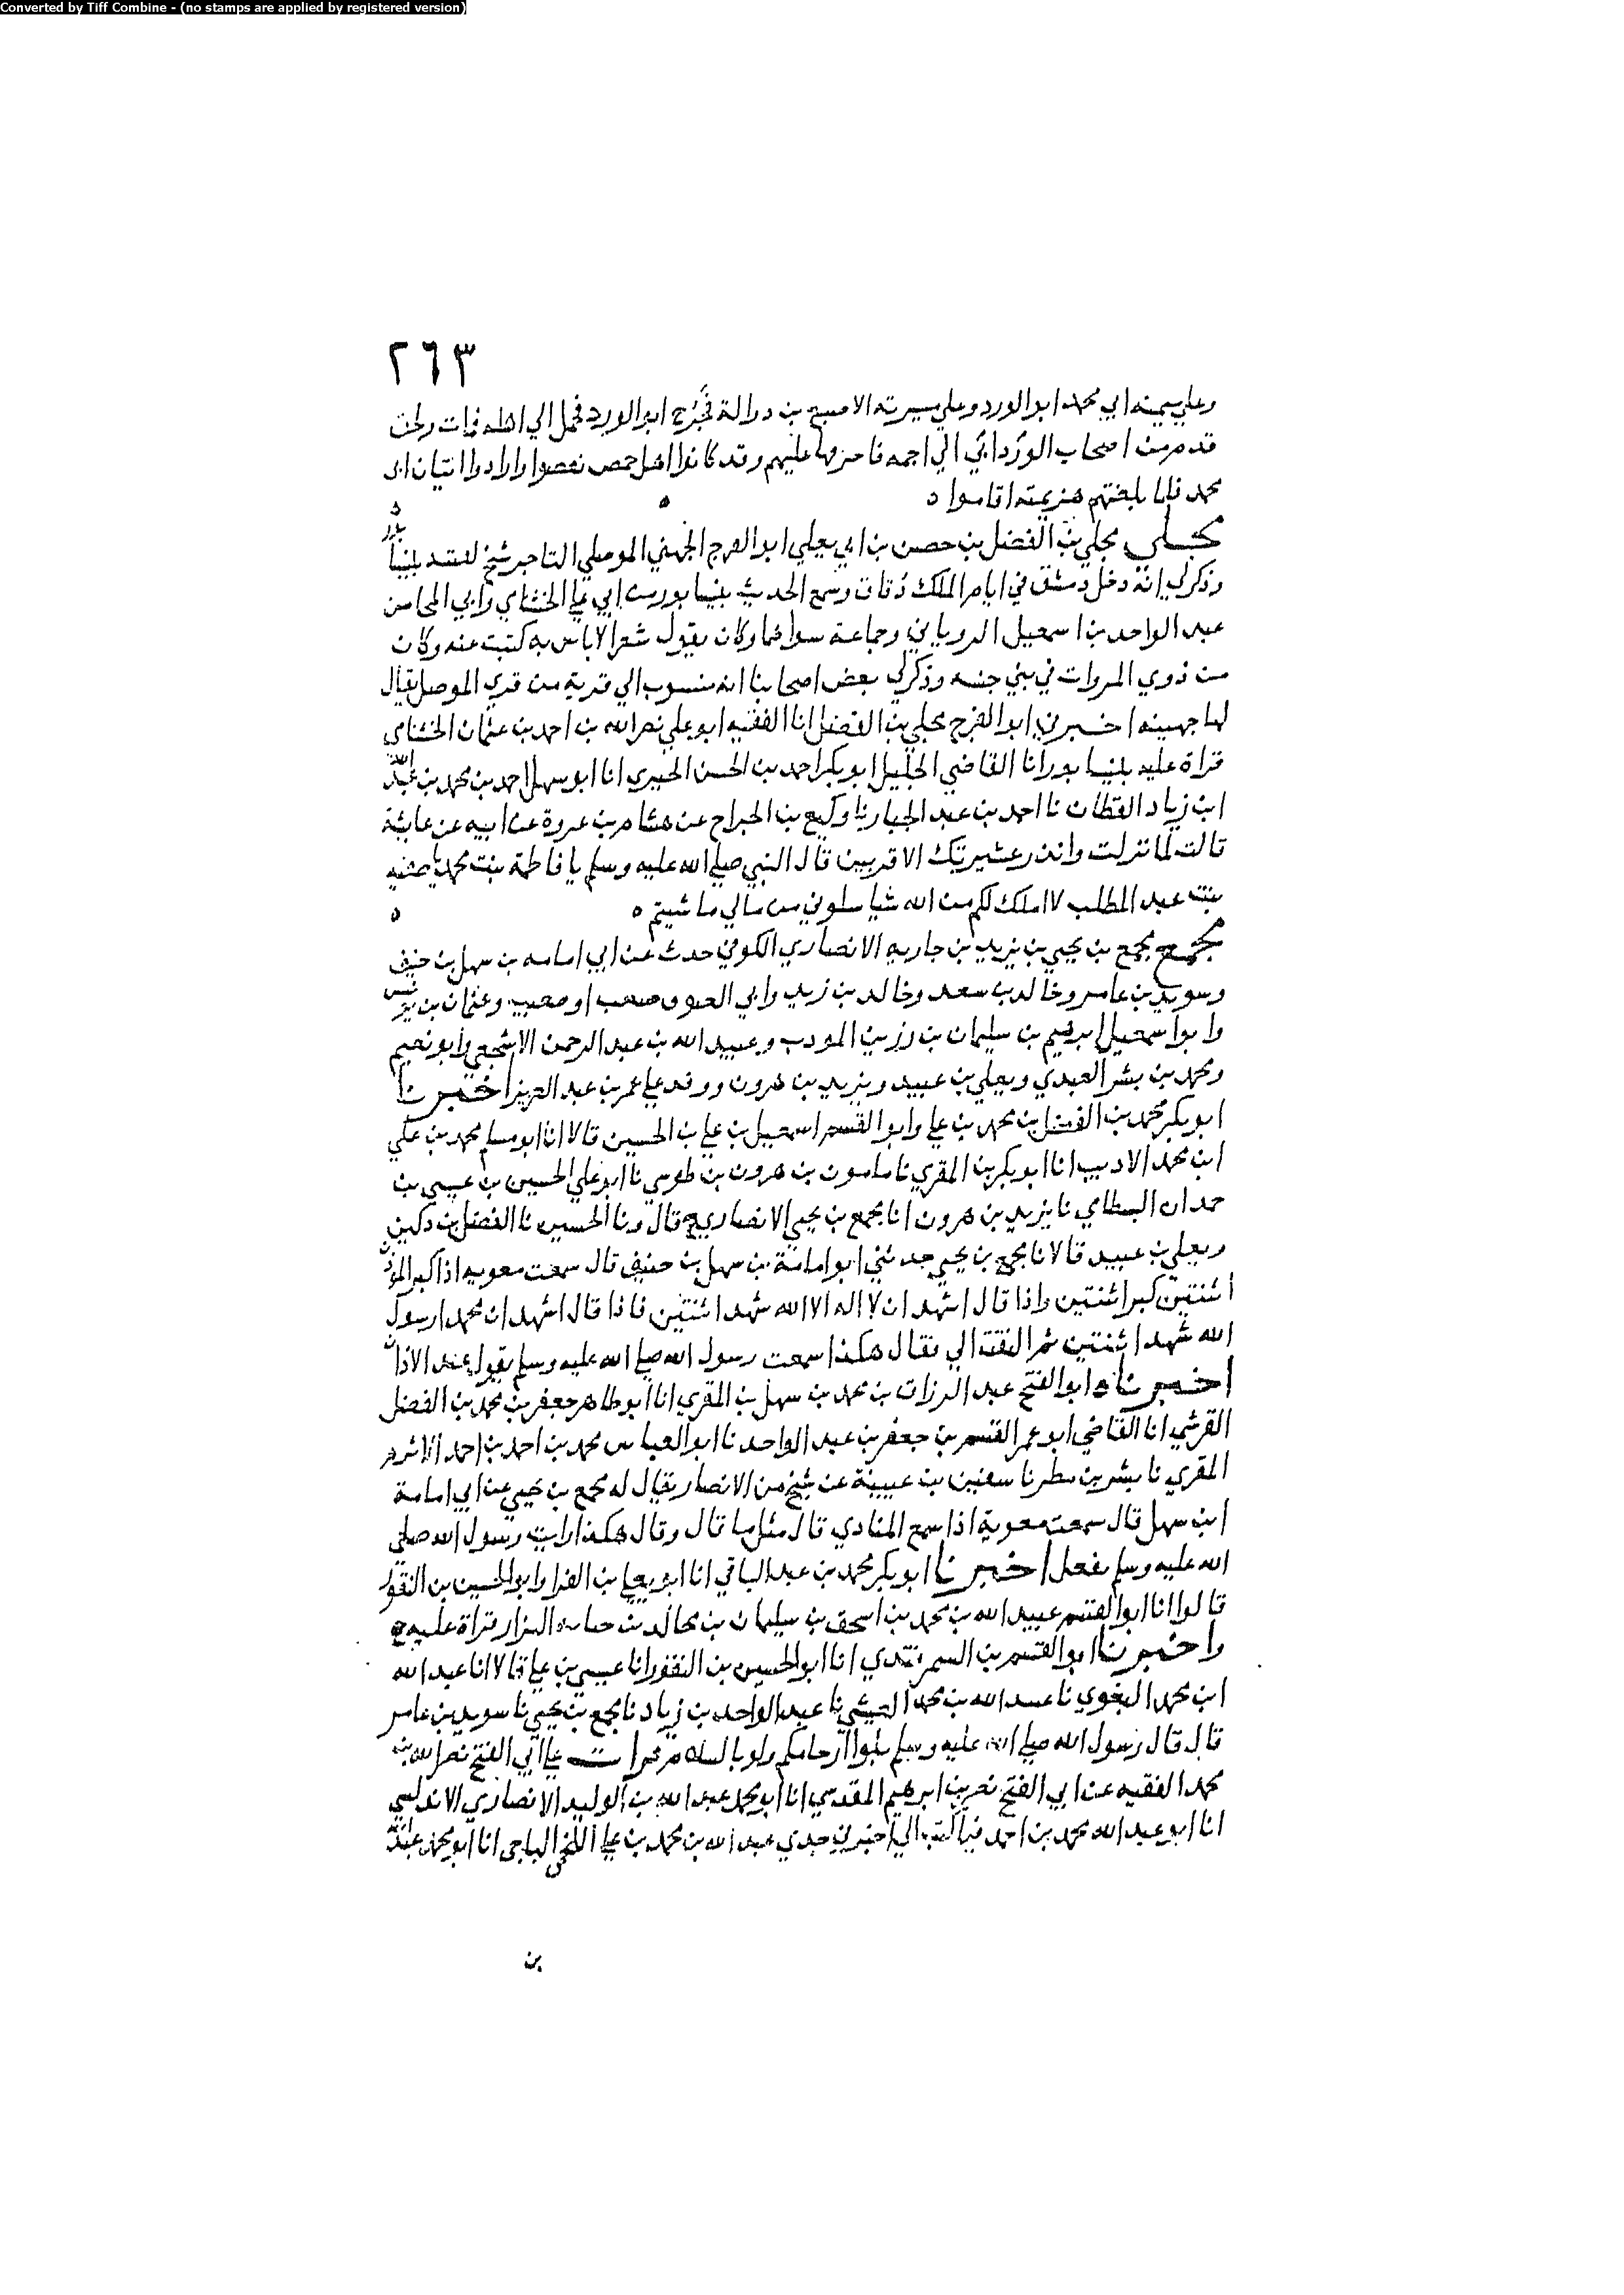 Converted by Tiff Combine - (no stamps are applied by registered version)
٢٦٣
وعلي ميمنه ابي محمد ابو الورد وعلي ميسرته الاصبح بن دوالة فخرج ابو الورد فحمل الي اهله فمات ولحق
قدم من اصحاب الورد ابي الي اجمه فاحرقها عليهم وقد كانوا اهل حمص نقضوا وارادوا اتيان ابي
محمد فلما بلغتهم هزيمته اقاموا ه
مجلي مجلي بن الفضل بن حصن بن ابي يعلي ابو الفرج الجهني الموصلي التاجر شيخ لقيته بنيسابور
وذكر لي انه دخل دمشق في ايام الملك دقاق وسمع الحديث بنيسابور من ابي علي الخشنامي وابي المحاسن
عبد الواحد بن اسمعيل الروياني وجماعة سواهما وكان يقول شعرا لا باس به كتبت عنه وكان
من ذوي المروات في بني جنسه وذكر لي بعض اصحابنا انه منسوب الي قرية من قري الموصل يقال
لها جهينه اخبرني ابو الفرج مجلي بن الفضل انا الفقيه ابو علي نصر الله بن احمد بن عثمان الخشنامي
قراة عليه بنيسابور انا القاضي الجليل ابو بكر احمد بن الحسن الحيري انا ابو سهل احمد بن محمد بن عبد الله
ابن زياد القطان نا احمد بن عبد الجبار نا وكيع بن الجراح عن هشام بن عروة عن ابيه عن عايشة
قالت لما نزلت وانذر عشيرتك الاقربين قال النبي صلي الله عليه وسلم يا فاطمة بنت محمد يا صفيه
بنت عبد المطلب لا املك لكم من الله شيا سلوني من مالي ما شيتم ه
مجمع مجمع بن يحيي بن يزيد بن جاريه الانصاري الكوفي حدث عن ابي امامه بن سهل بن حنيف
وسويد بن عامر وخالد بن سعد وخالد بن زيد وابي العيوف صعب او صعيب وعثمان بن
وابو اسمعيل ابرهيم بن سليمان بن رزين المودب وعبيد الله بن عبد الرحمن الاشجعي وابو نعيم
ومحمد بن بشر العبدي ويعلي بن عبيد ويزيد بن هرون ووفد علي عمر بن عبد العزيز اخبرنا
ابو بكر محمد بن الفضل بن محمد بن علي وابو القسم اسمعيل بن علي بن الحسين قالا انا ابو مسلم محمد بن علي
ابن محمد الاديب انا ابو بكر بن المقري نا مامون بن هرون بن طوسي نا ابو علي الحسين بن عيسي بن
حمدان البسطامي نا يزيد بن هرون انا مجمع بن يحيي الانصاري ح قال ونا الحسين نا الفضل بن دكين
ويعلي بن عبيد قالا نا مجمع بن يحيي حدثني ابو امامة بن سهل بن حنيف قال سمعت معويه اذا كبر الموذن
اثنتين كبر اثنتين واذا قال اشهد ان لا اله الا الله شهد اثنتين فاذا قال اشهد ان محمدا رسول
الله شهد اثنتين ثم التفت الي فقال هكذا سمعت رسول الله صلي الله عليه وسلم يقول عند الاذان
اخبرناه ابو الفتح عبد الرزاق بن محمد بن سهل بن المقري انا ابو طاهر جعفر بن محمد بن الفضل
القرشي انا القاضي ابو عمر القسم بن جعفر بن عبد الواحد نا ابو العباس محمد بن احمد بن احمد الاثرم
المقري نا بشر بن مطر نا سفين بن عيينة عن شيخ من الانصار يقال له مجمع بن يحيي عن ابي امامة
ابن سهل قال سمعت معوية اذا سمع المنادي قال مثل ما قال وقال هكذا رايت رسول الله صلي
الله عليه وسلم يفعل اخبرنا ابو بكر محمد بن عبد الباقي انا ابو يعلي بن الفرا وابو الحسين بن النقور
قالوا انا ابو القسم عبيد الله بن محمد بن اسحق بن سليمان بن مخالد بن حبابه البزار قراة عليه ح
واخبرنا ابو القسم بن السمرقندي انا ابو الحسين بن النقور انا عيسي بن علي قالا انا عبد الله
ابن محمد البغوي نا عبيد الله بن محمد العيشي نا عبد الواحد بن زياد نا مجمع بن يحيي نا سويد بن عامر
قال قال رسول الله صلي الله عليه وسلم بلوا ارحامكم ولو بالسلام قرات علي ابي الفتح نصر الله بن
محمد الفقيه عن ابي الفتح نصر بن ابرهيم المقدسي انا ابو محمد عبد الله بن الوليد الانصاري الاندلسي
انا ابو عبد الله محمد بن احمد فيما كتب الي اخبرني جدي عبد الله بن محمد بن علي اللخمي الباجي انا ابو محمد عبد الله
بن